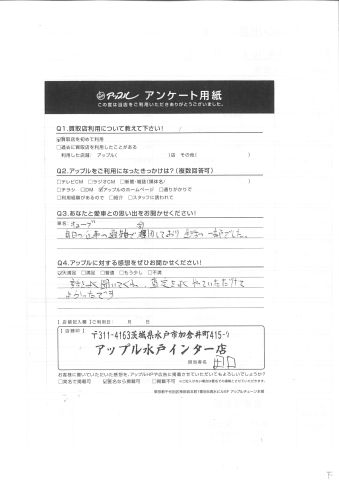 アップル アンケート用紙
この度は当店をご利用いただきありがとうございました。
Q1.買取店利用について教えて下さい!
☑買取店を初めて利用
□過去に買取店を利用したことがある
利用した店舗 アップル( 店 その他( )
Q2.アップルをご利用になったきっかけは?(複数回答可)
□テレビCM □ラジオCM □新聞・雑誌(媒体名/ )
□チラシ □DM ☑アップルのホームページ □通りがかりで
□利用経験があるので □紹介 □スタッフに誘われて
Q3.あなたと愛車との思い出をお聞かせください!
車名 キューブ
毎日の仕事の で しており 生活の一部でした。
Q4.アップルに対する感想をぜひお聞かせください!
☑大満足 □満足 □普通 □もう少し □不満
話をよく聞いてくれ、査定もよくやっていただけて
よかったです
【店頭記入欄】ご利用日: 月 日
【店舗印】
〒311-4163茨城県水戸市加倉井町415-
アップル水戸インター店
担当者名 出口
お客様に書いていただいた感想を、アップルHPや広告に掲載させていただいてもよろしいでしょうか?
□実名で掲載可 ☑匿名なら掲載可 □掲載不可